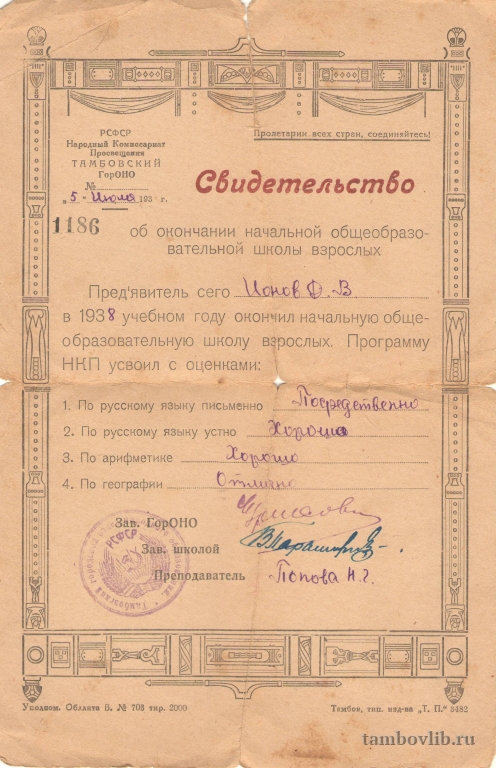 РСФСР
Народный Комиссариат
Просвещения
ТАМБОВСКИЙ
ГорОНО
№
„5 - Июля 193 г.
1186
Пролетарии всех стран, соединяйтесь!
Свидетельство
об окончании начальной общеобразо-
вательной школы взрослых
Пред'явитель сего Ионов Д. В
в 1938 учебном году окончил начальную обще-
образовательную школу взрослых. Программу
НКП усвоил с оценками:
1. По русскому языку письменно Посредственно
2. По русскому языку устно Хорошо
3. По арифметике Хорошо
4. По географии Отлично
Зав. ГорОНО
Зав. школой
Преподаватель Попова Н. Г.
РСФСР
Уполном. Обллита Б. № 703 тир. 2000
Тамбов, тип. изд-ва „Т. П." 3482
tambovlib.ru